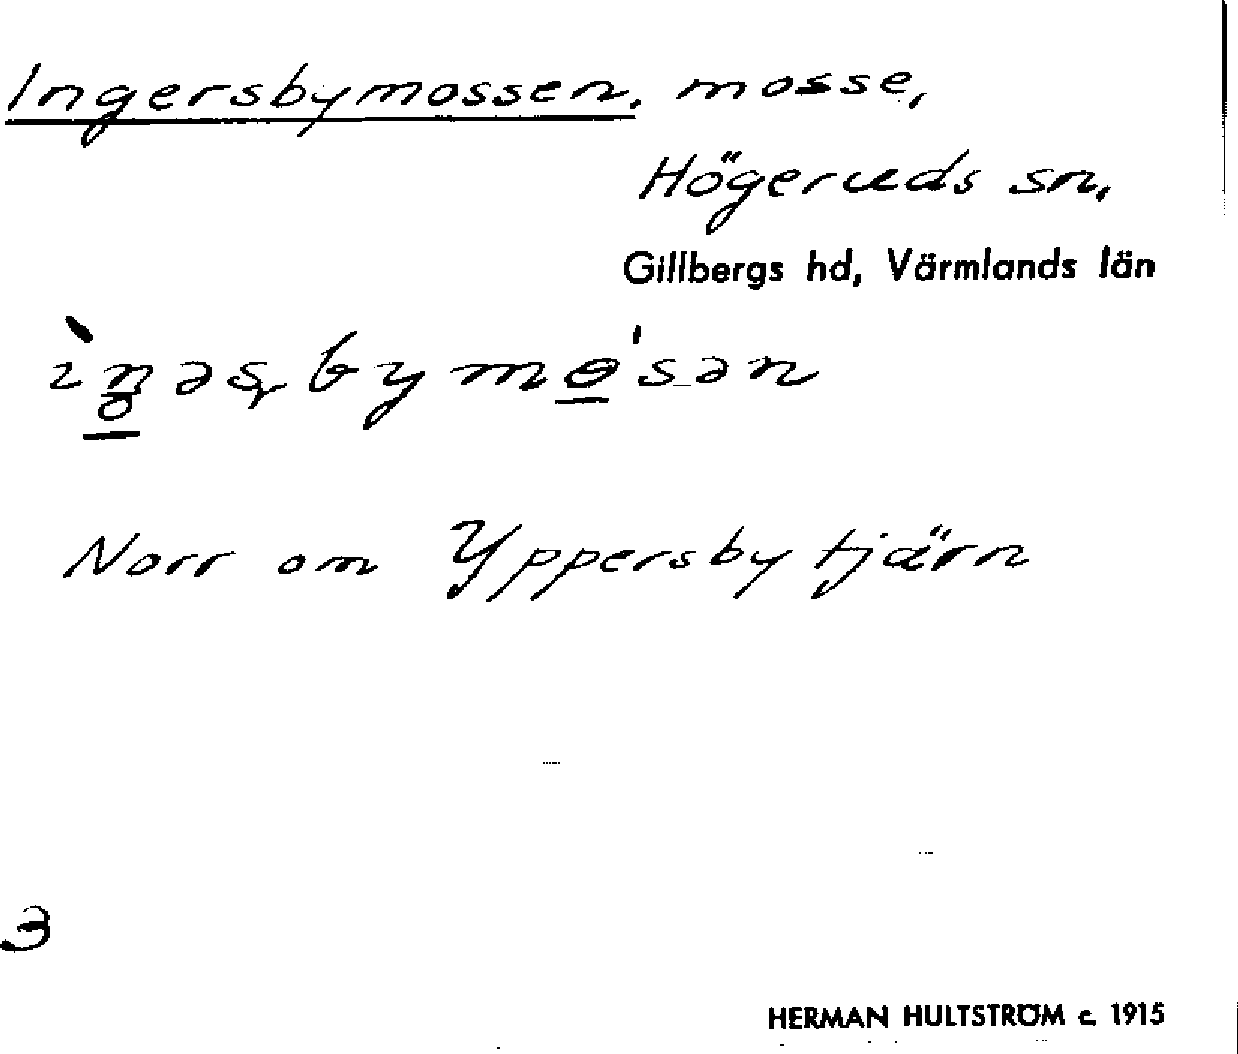 Ingersbymossen, mosse,
Högeruds sn,
Gillbergs hd, Värmlands län
Norr om Yppersby tjärn
3
HERMAN HULTSTRÖM c. 1915